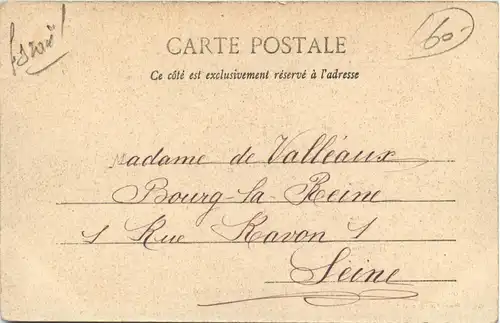 60-
CARTE POSTALE
Ce côté est exclusivement réservé à l'adresse
Madame de Valléaux
Bourg-la-Reine
1 Rue Ravon 1
Seine